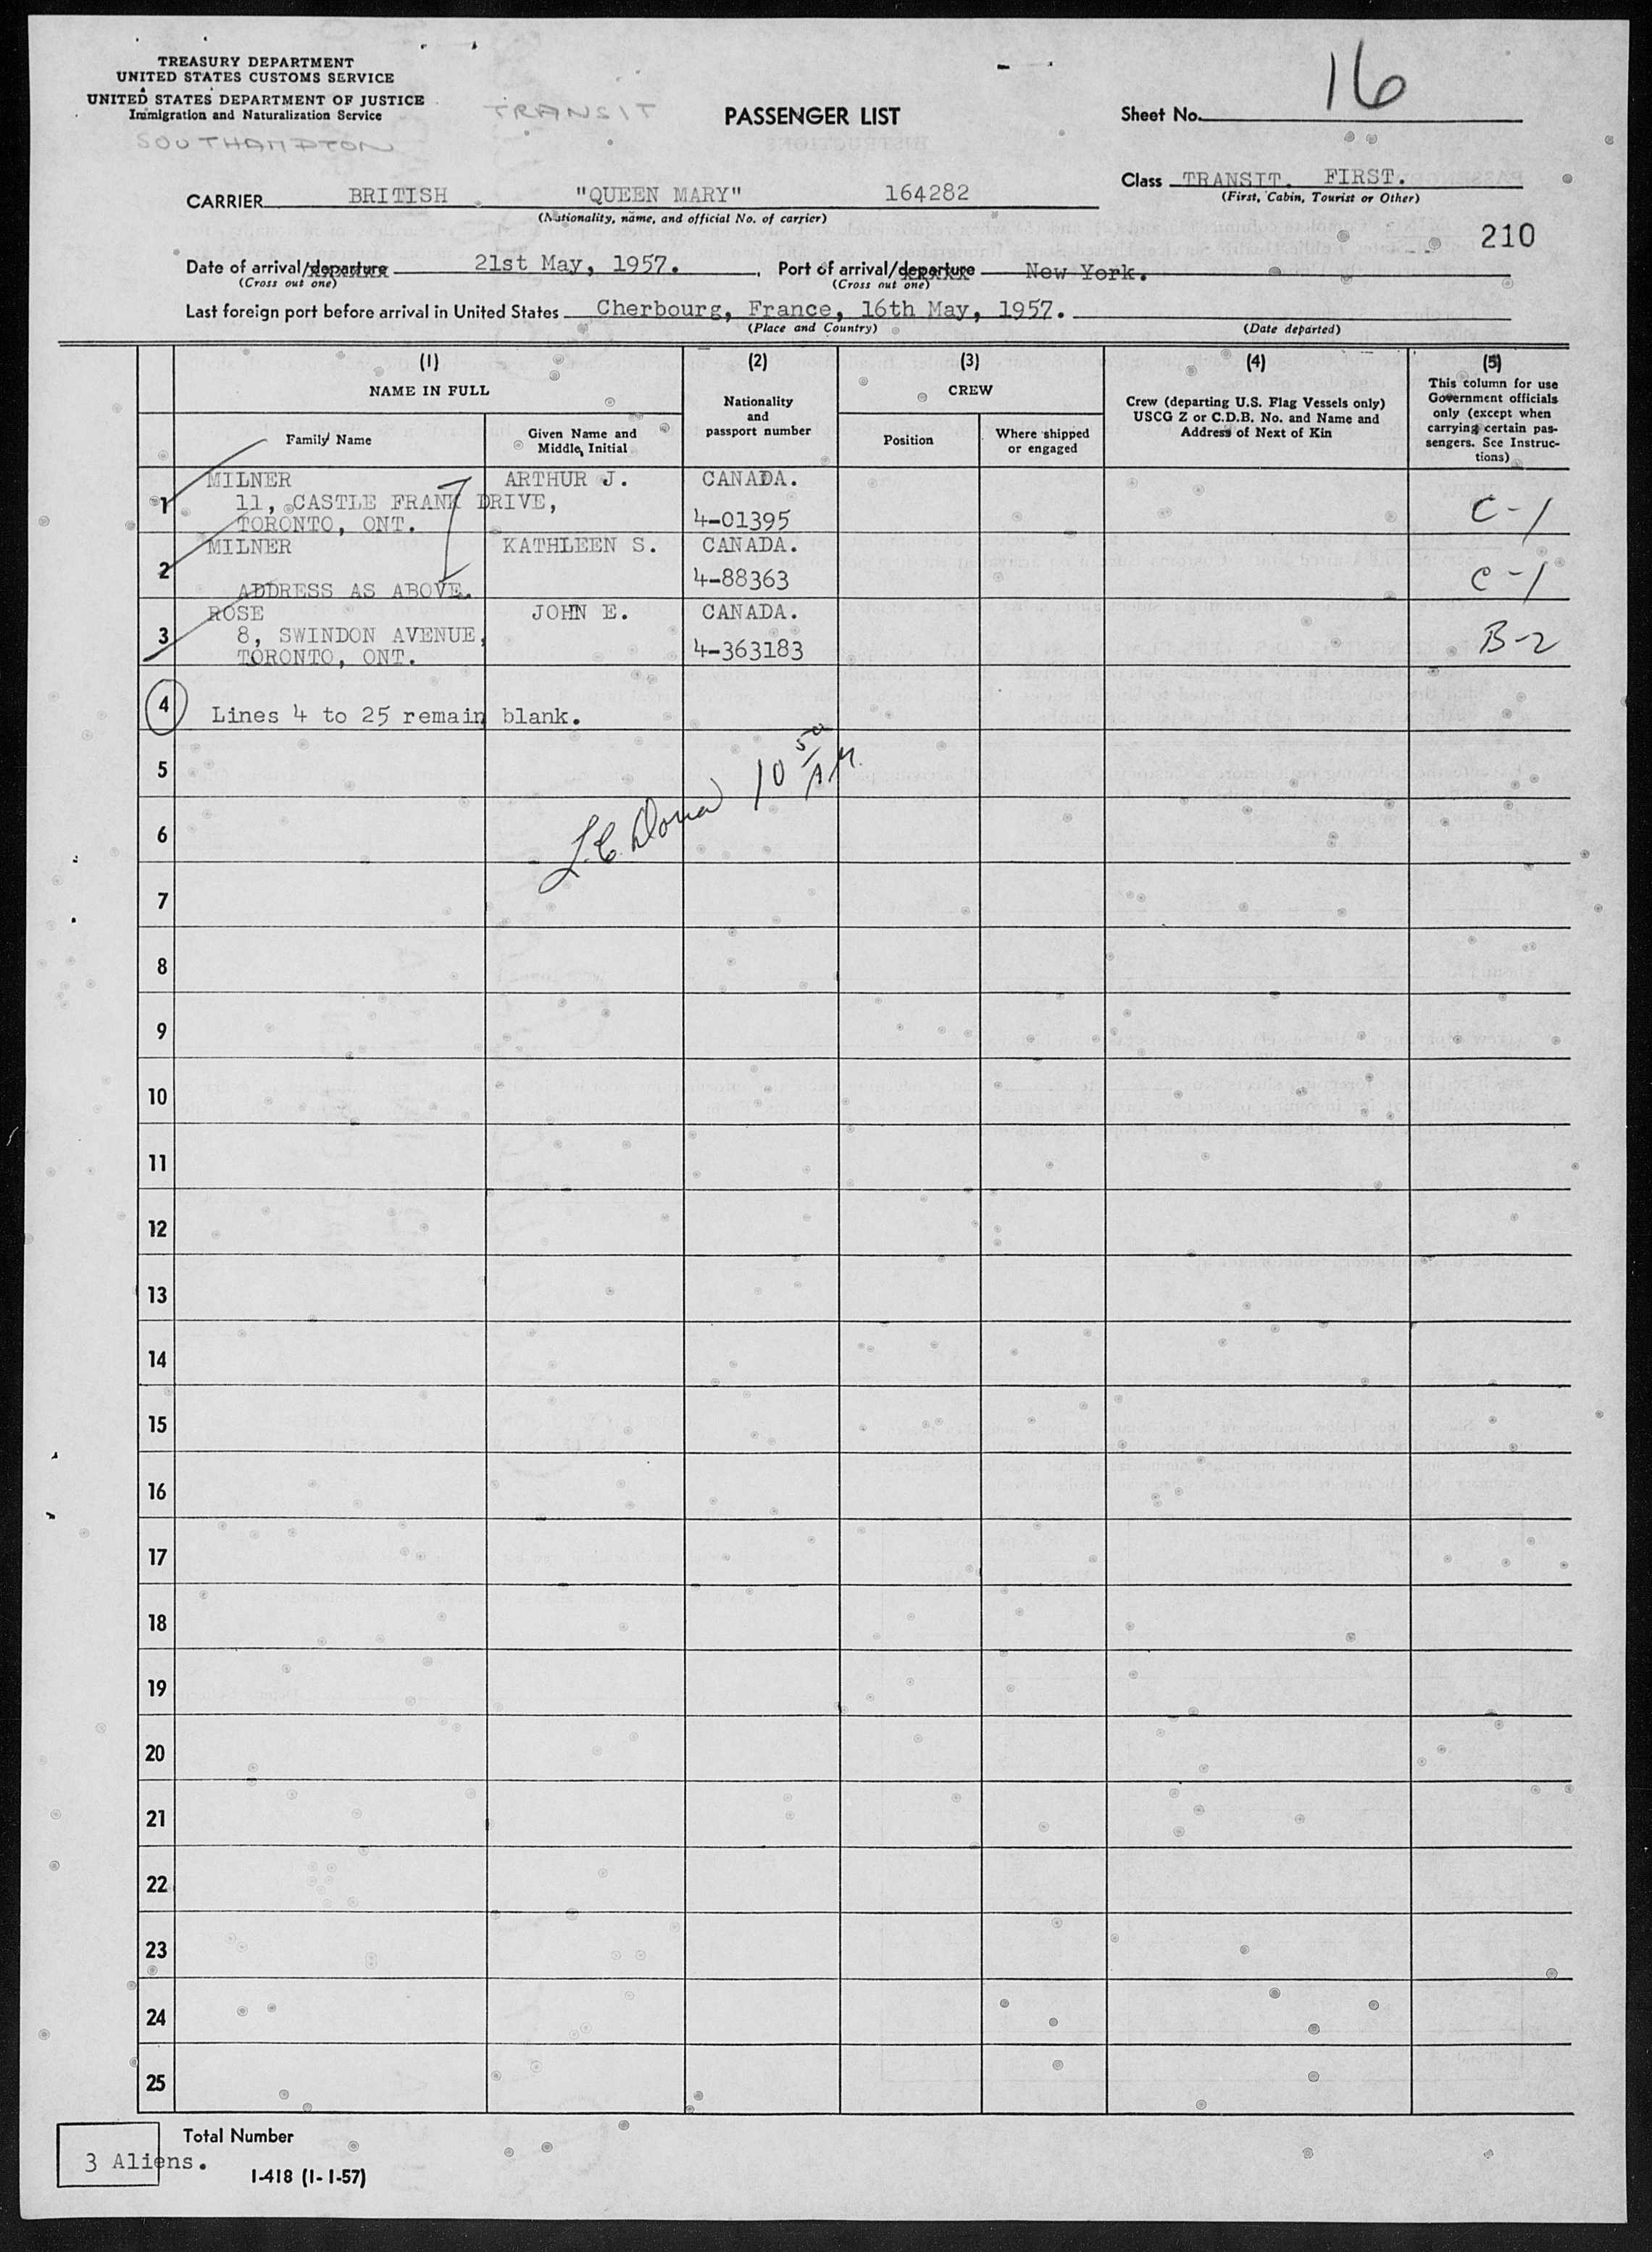 TREASURY DEPARTMENT
UNITED STATES CUSTOMS SERVICE
UNITED STATES DEPARTMENT OF JUSTICE
Immigration and Naturalization Service
SOUTHAMPTON
TRANSIT
PASSENGER LIST
Sheet No. 16
Class TRANSIT. FIRST.
(First, Cabin, Tourist or Other)
CARRIER BRITISH "QUEEN MARY" 164282
(Nationality, name, and official No. of carrier)
210
Date of arrival/departure 21st May, 1957. , Port of arrival/departure New York.
(Cross out one) (Cross out one)
Last foreign port before arrival in United States Cherbourg, France, 16th May, 1957.
(Place and Country) (Date departed)
(1) (2) (3) (4) (5)
NAME IN FULL
Family Name
Given Name and
Middle Initial
Nationality
and
passport number
CREW
Position
Where shipped
or engaged
Crew (departing U.S. Flag Vessels only)
USCG Z or C.D.B. No. and Name and
Address of Next of Kin
This column for use
Government officials
only (except when
carrying certain pas-
sengers. See Instruc-
tions)
1 MILNER ARTHUR J. CANADA.
11, CASTLE FRANK DRIVE, C-1
TORONTO, ONT. 4-01395
2 MILNER KATHLEEN S. CANADA.
ADDRESS AS ABOVE. 4-88363 C-1
3 ROSE JOHN E. CANADA.
8, SWINDON AVENUE, B-2
TORONTO, ONT. 4-363183
4 Lines 4 to 25 remain blank.
5
10 50 AM.
6
7
8
9
10
11
12
13
14
15
16
17
18
19
20
21
22
23
24
25
Total Number
3 Aliens.
I-418 (1-1-57)